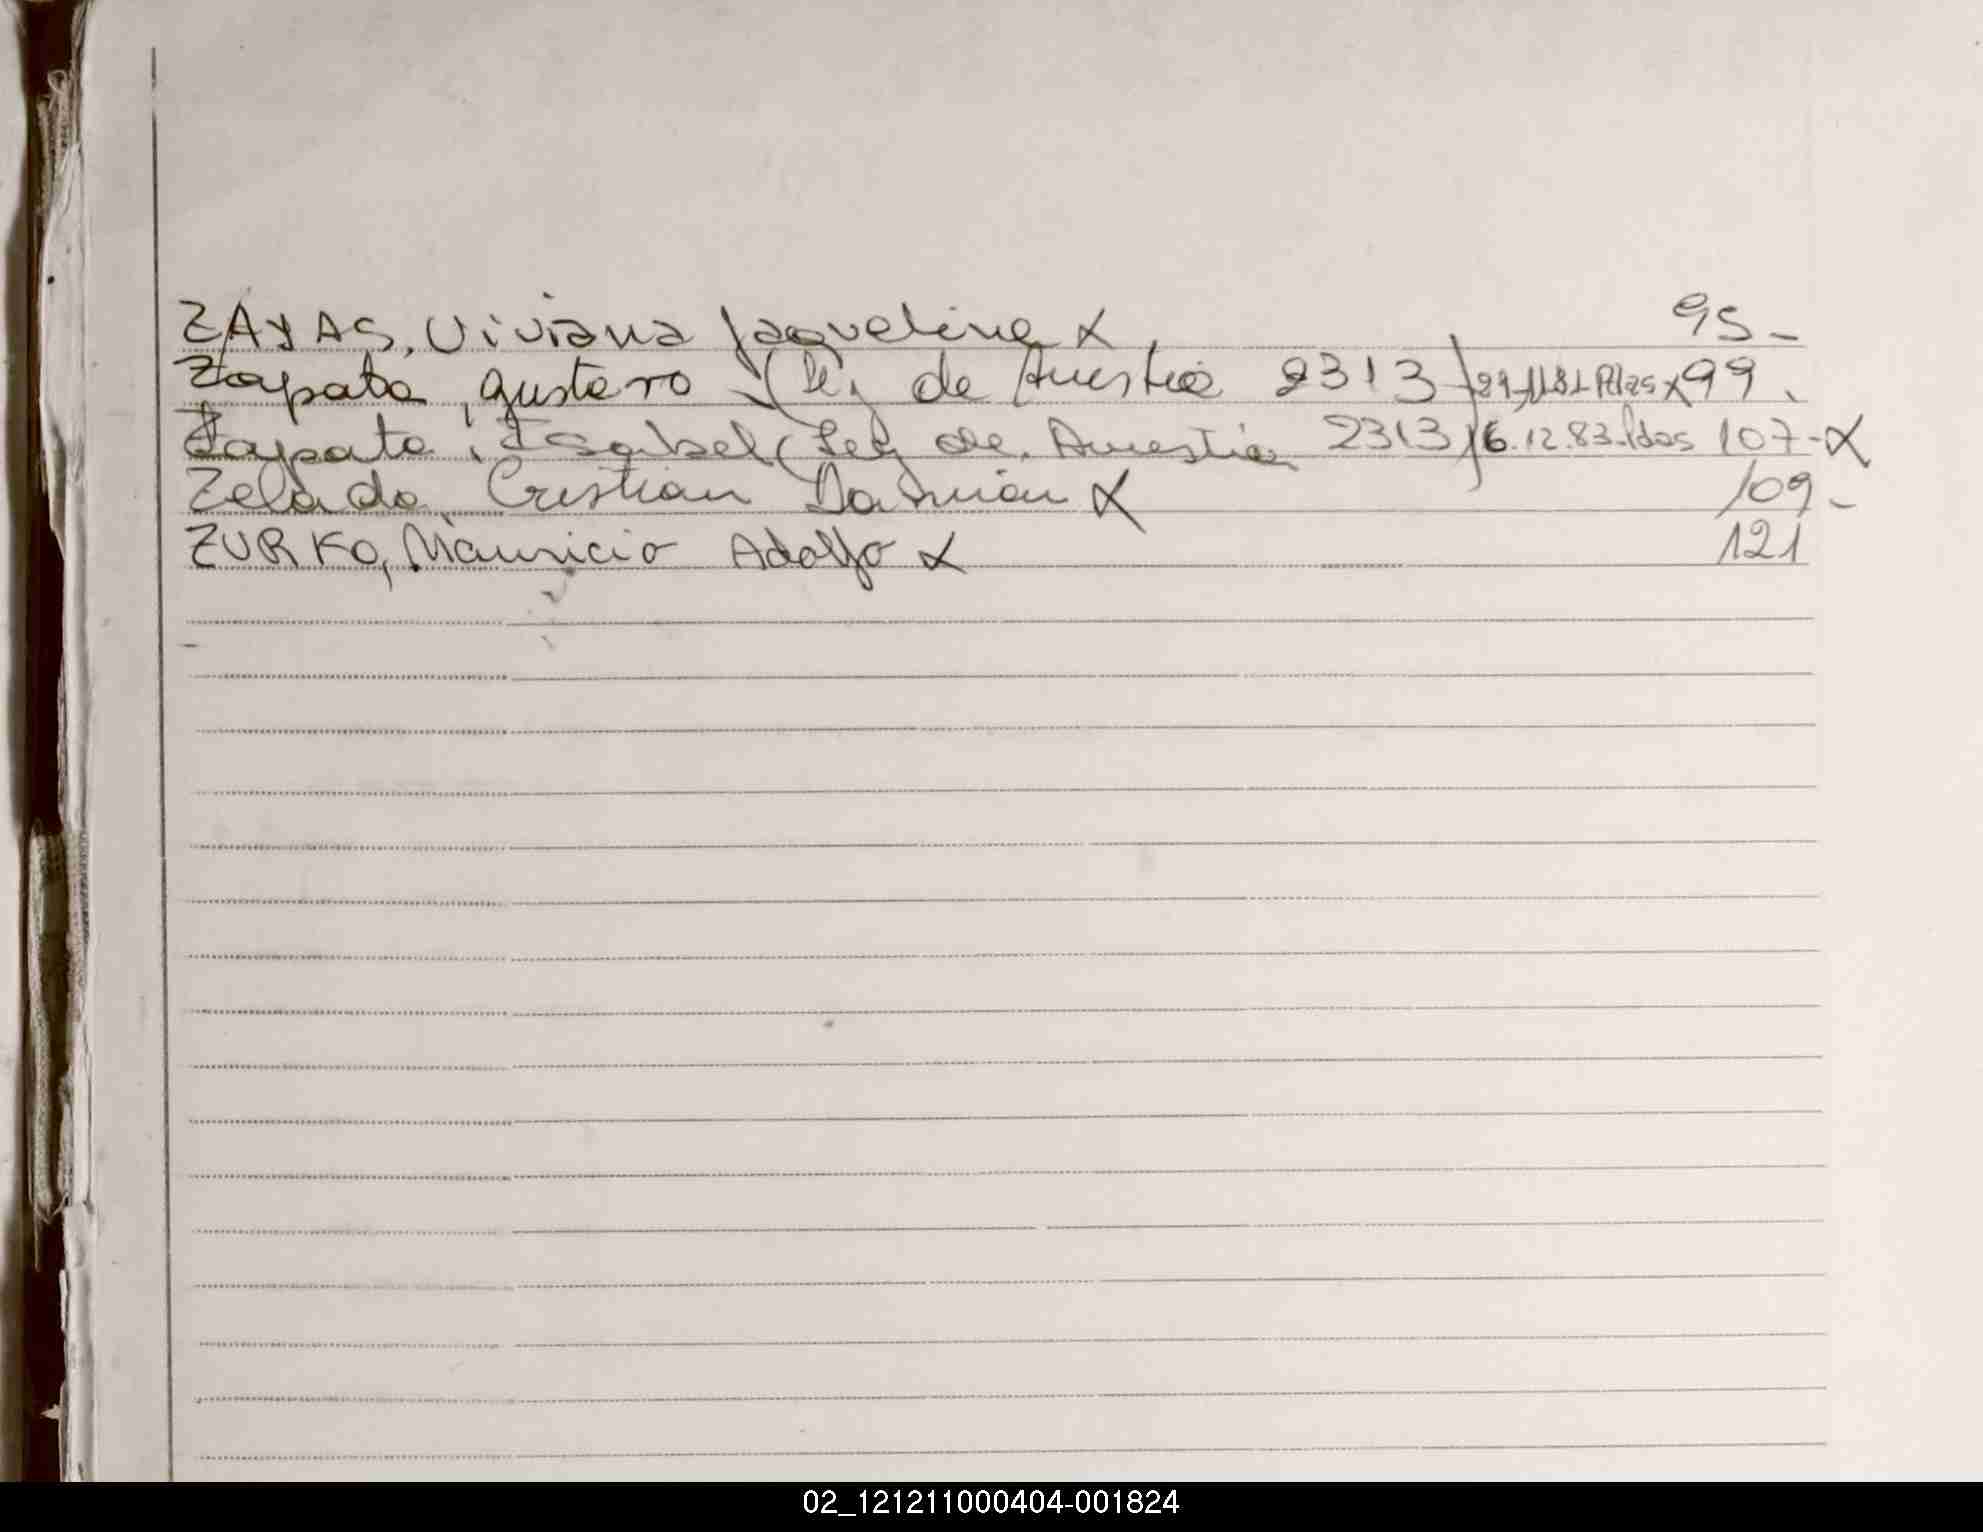 ZAYAS, Viviana Jaqueline x 95-
Zapata, Gustavo (Ley de Amestia 2313) Pdas x 99.
Zapata, Isabel (Ley de Amestia 2313) 6.12.83. Pdas 107-x
Zelada, Cristian Damián x 109-
ZURKO, Mauricio Adolfo x 121
02_121211000404-001824